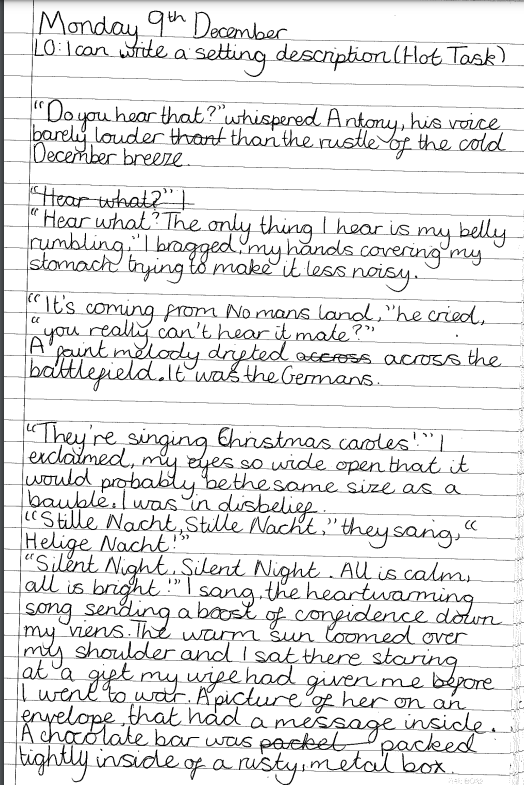 Monday 9th December
LO: I can write a setting description (Hot Task)
"Do you hear that?" whispered Antony, his voice
barely louder thant than the rustle of the cold
December breeze.
"Hear what?" I
"Hear what? The only thing I hear is my belly
rumbling," I bragged, my hands covering my
stomach trying to make it less noisy.
"It's coming from No mans land," he cried,
"you really can't hear it mate?"
A faint melody drifted accross across the
battlefield. It was the Germans.
"They're singing Christmas caroles!" I
exclaimed, my eyes so wide open that it
would probably be the same size as a
bauble. I was in disbelief.
"Stille Nacht, Stille Nacht," they sang, "
Helige Nacht!"
"Silent Night, Silent Night. All is calm,
all is bright!" I sang, the heartwarming
song sending a boost of confidence down
my viens. The warm sun loomed over
my shoulder and I sat there staring
at a gift my wife had given me before
I went to war. A picture of her on an
envelope, that had a message inside.
A chocolate bar was packet packed
tightly inside of a rusty, metal box.